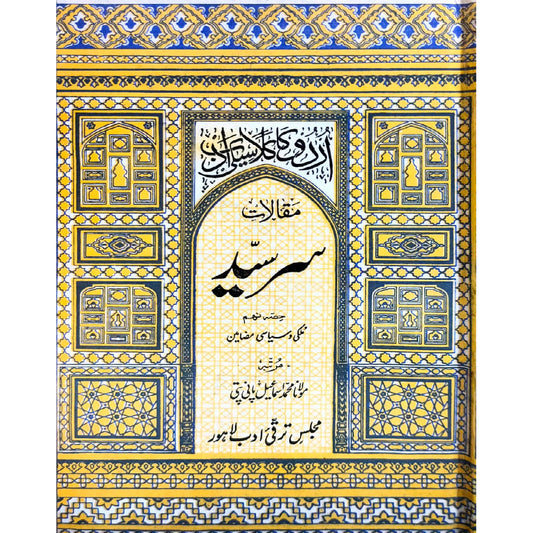 اردو کا کلاسیکی ادب
مقالات
سر سیّد
حصہ نہم
ملکی و سیاسی مضامین
مرتبہ
مولانا محمد اسماعیل پانی پتی
مجلس ترقیٔ ادب لاہور